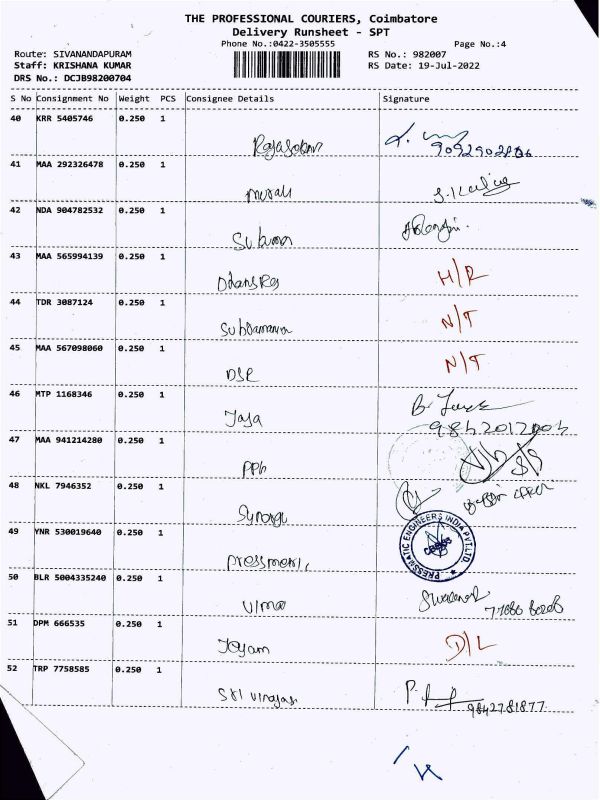 THE PROFESSIONAL COURIERS, Coimbatore
Delivery Runsheet - SPT
Phone No.:0422-3505555
Page No.:4
Route: SIVANANDAPURAM
RS No.: 982007
Staff: KRISHANA KUMAR
RS Date: 19-Jul-2022
DRS No.: DCJB98200704
S No Consignment No Weight PCS Consignee Details Signature
40 KRR 5405746 0.250 1
41 MAA 292326478 0.250 1
murali
42 NDA 904782532 0.250 1
43 MAA 565994139 0.250 1
H/R
44 TDR 3087124 0.250 1
N/T
45 MAA 567098060 0.250 1
DSR N/T
46 MTP 1168346 0.250 1
Jaja
47 MAA 941214280 0.250 1
PPL
48 NKL 7946352 0.250 1
Synergy
49 YNR 530019640 0.250 1
PRESSMATIC ENGINEERS INDIA PVT.LTD
50 BLR 5004335240 0.250 1
Vimal
51 DPM 666535 0.250 1
Joyam D/L
52 TRP 7758585 0.250 1
Sri Vinayaga
9842781877